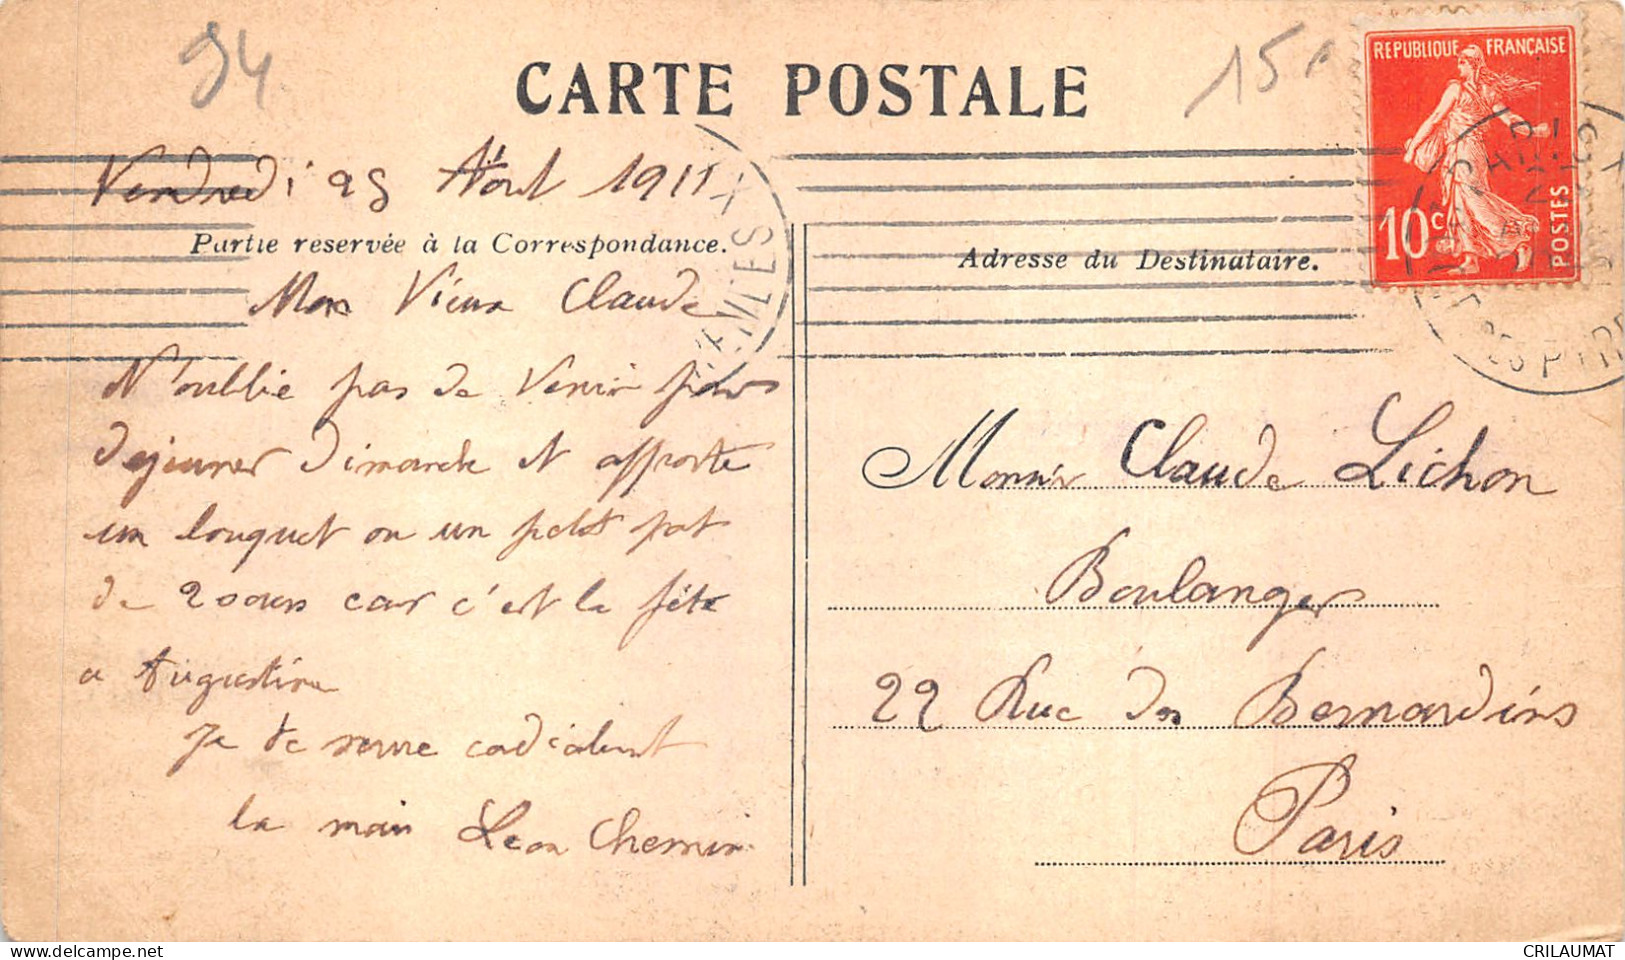 94
15
CARTE POSTALE
REPUBLIQUE FRANÇAISE
10c
POSTES
Vendredi 25 Aout 1911
Partie reservée à la Correspondance.
Adresse du Destinataire.
Mon Vieux Claude
N'oublie pas de Venir pour
dejeuner Dimanche et apporte
un bouquet ou un petit pot
de 20 ous car c'est la fête
a Augustine
Je te serre cordialement
la main Leon Chemin
Monsieur Claude Lichon
Boulanger
22 Rue des Bernardins
Paris
CRILAUMAT